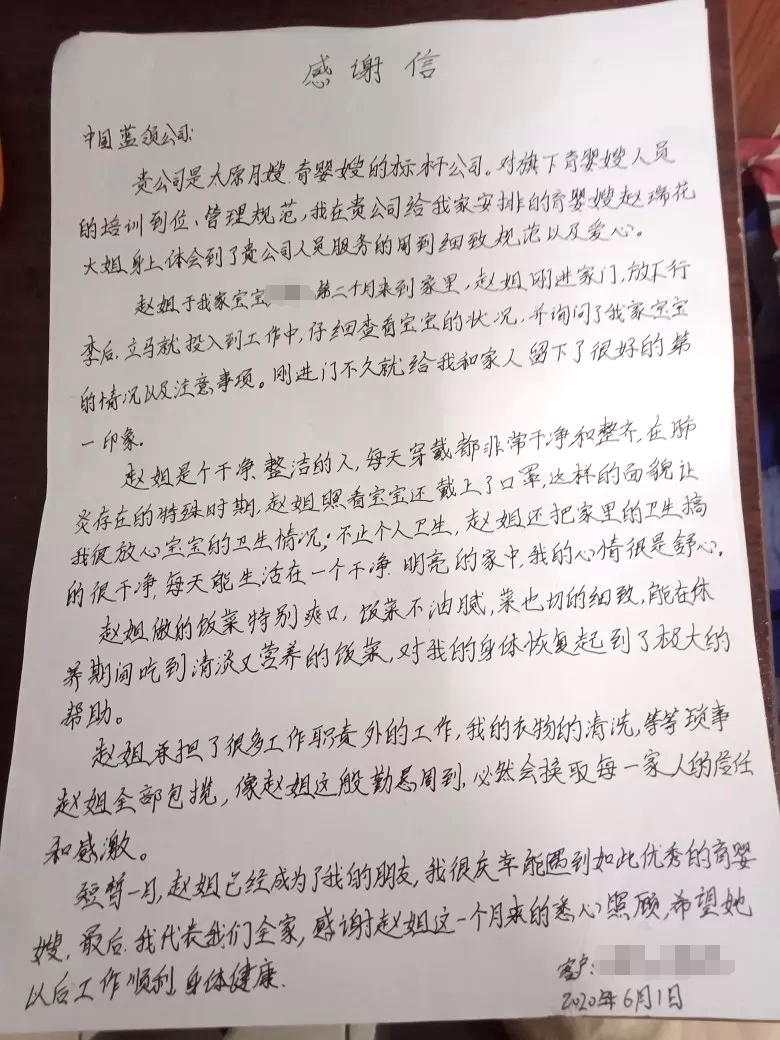 感谢信
中国蓝领公司:
贵公司是太原月嫂.育婴嫂的标杆公司。对旗下育婴嫂人员
的培训到位、管理规范,我在贵公司给我家安排的育婴嫂赵瑞花
大姐身上体会到了贵公司人员服务的周到细致规范以及爱心。
赵姐于我家宝宝 第二个月来到家里,赵姐刚进家门,放下行
李后,立马就投入到工作中,仔细查看宝宝的状况,并询问了我家宝宝
的情况以及注意事项。刚进门不久就给我和家人留下了很好的第
一印象。
赵姐是个干净、整洁的人,每天穿戴都非常干净和整齐,在肺
炎存在的特殊时期,赵姐照看宝宝还戴上了口罩,这样的面貌让
我很放心宝宝的卫生情况;不止个人卫生,赵姐还把家里的卫生搞
的很干净,每天能生活在一个干净.明亮的家中,我的心情很是舒心。
赵姐做的饭菜特别爽口,饭菜不油腻,菜也切的细致,能在休
养期间吃到清淡又营养的饭菜,对我的身体恢复起到了极大的
帮助。
赵姐承担了很多工作职责外的工作,我的衣物的清洗,等等琐事
赵姐全部包揽,像赵姐这般勤恳周到,必然会换取每一家人的信任
和感激。
短暂一月,赵姐已经成为了我的朋友,我很庆幸能遇到如此优秀的育婴
嫂,最后.我代表我们全家,感谢赵姐这一个月来的悉心照顾,希望她
以后工作顺利,身体健康.
客户:
2020年6月1日